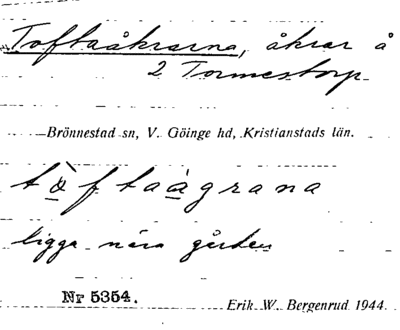 Toftaåkrarna, åkrar å
2 Tormestorp
Brönnestad sn, V. Göinge hd, Kristianstads län.
tòftaàgrana
ligga nära gården
Nr 5354.
Erik W. Bergenrud 1944.